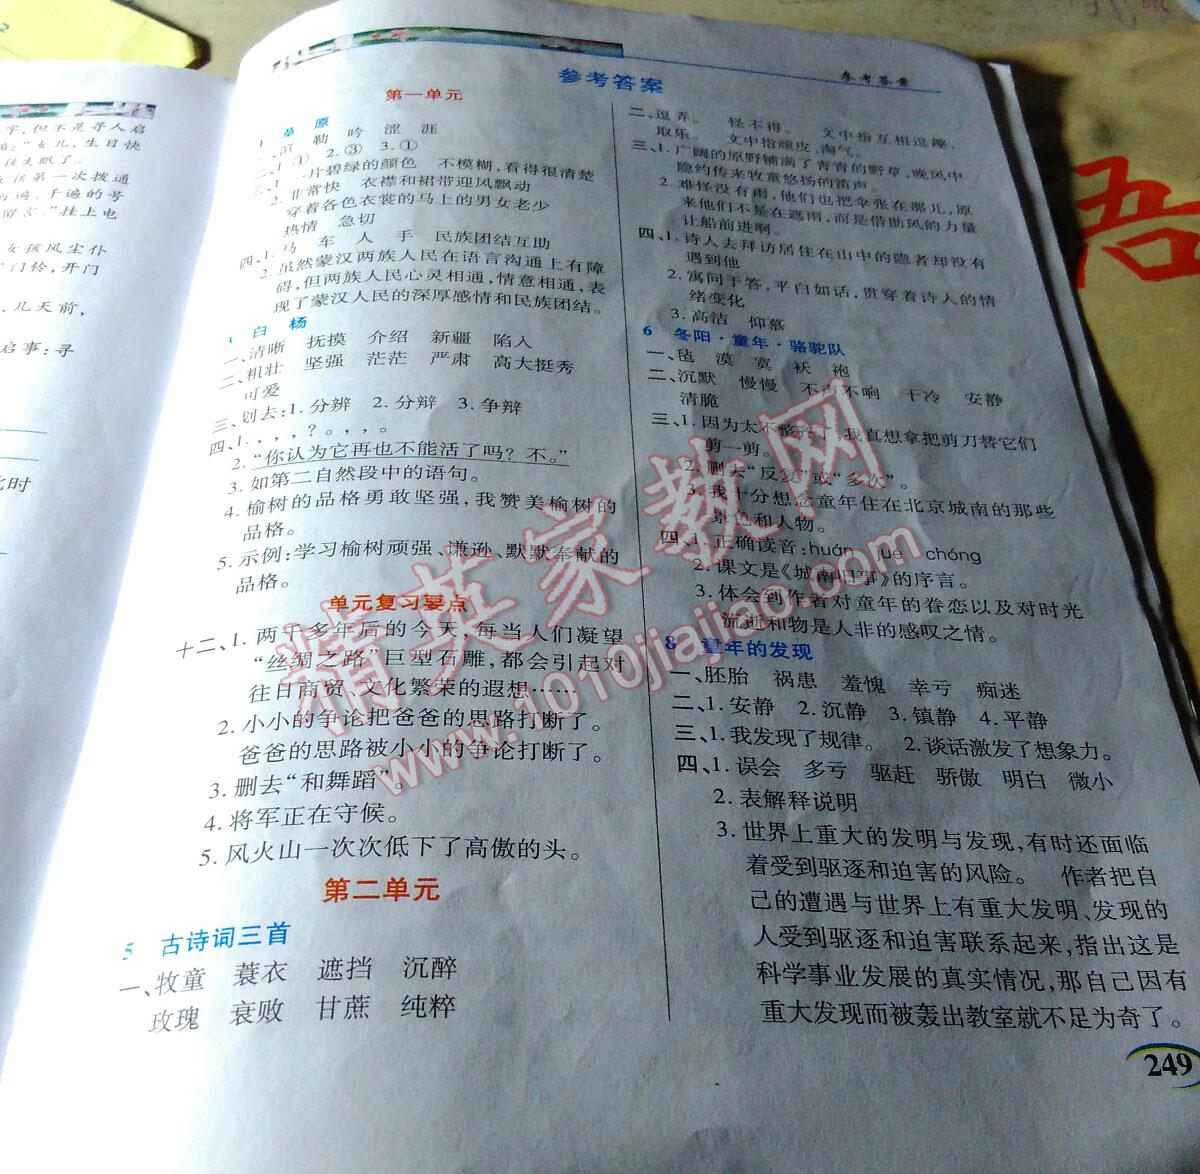 字,但不是寻人启
:“女儿,生日快
孩失眠了。
女孩第一次拨通
一遍、千遍的号
留言。”挂上电
女孩风尘仆
门铃,开门
,几天前,
启事:寻
比时
参考答案
参考答案
第一单元
草原
勒 吟 涩 涯
二、1.① 2.③ 3.①
三、1.一片碧绿的颜色 不模糊,看得很清楚
2.非常快 衣襟和裙带迎风飘动
穿着各色衣裳的马上的男女老少
热情 急切
四、1.马 车 人 手 民族团结互助
2.虽然蒙汉两族人民在语言沟通上有障
碍,但两族人民心灵相通,情意相通,表
现了蒙汉人民的深厚感情和民族团结。
白杨
一、清晰 抚摸 介绍 新疆 陷入
二、粗壮 坚强 茫茫 严肃 高大挺秀
可爱
三、划去:1.分辨 2.分辩 3.争辩
四、1.,,,,?。,,。
2.“你认为它再也不能活了吗?不。”
3.如第二自然段中的语句。
4.榆树的品格勇敢坚强,我赞美榆树的
品格。
5.示例:学习榆树顽强、谦逊、默默奉献的
品格。
单元复习要点
十二、1.两千多年后的今天,每当人们凝望
“丝绸之路”巨型石雕,都会引起对
往日商贸、文化繁荣的遐想……
2.小小的争论把爸爸的思路打断了。
爸爸的思路被小小的争论打断了。
3.删去“和舞蹈”。
4.将军正在守候。
5.风火山一次次低下了高傲的头。
第二单元
5 古诗词三首
一、牧童 蓑衣 遮挡 沉醉
玫瑰 衰败 甘蔗 纯粹
二、逗弄。 怪不得。 文中指互相逗趣、
取乐。 文中指顽皮、淘气。
三、1.广阔的原野铺满了青青的野草,晚风中
隐约传来牧童悠扬的笛声。
2.难怪没有雨,他们也把伞张在那儿,原
来他们不是在遮雨,而是借助风的力量
让船前进啊。
四、1.诗人去拜访居住在山中的隐者却没有
遇到他
2.寓问于答,平白如话,贯穿着诗人的情
绪变化
3.高洁 仰慕
6 冬阳·童年·骆驼队
一、毡 漠 寞 袄 袍
二、沉默 慢慢 不声不响 干冷 安静
清脆
三、1.因为太不整齐了,我真想拿把剪刀替它们
剪一剪。
2.删去“反复”或“多次”。
3.我十分想念童年住在北京城南的那些
景色和人物。
四、1.正确读音:huán jué chóng
2.课文是《城南旧事》的序言。
3.体会到作者对童年的眷恋以及对时光
流逝和物是人非的感叹之情。
8 童年的发现
一、胚胎 祸患 羞愧 幸亏 痴迷
二、1.安静 2.沉静 3.镇静 4.平静
三、1.我发现了规律。 2.谈话激发了想象力。
四、1.误会 多亏 驱赶 骄傲 明白 微小
2.表解释说明
3.世界上重大的发明与发现,有时还面临
着受到驱逐和迫害的风险。 作者把自
己的遭遇与世界上有重大发明、发现的
人受到驱逐和迫害联系起来,指出这是
科学事业发展的真实情况,那自己因有
重大发现而被轰出教室就不足为奇了。
249
精英家教网
www.1010jiajiao.com